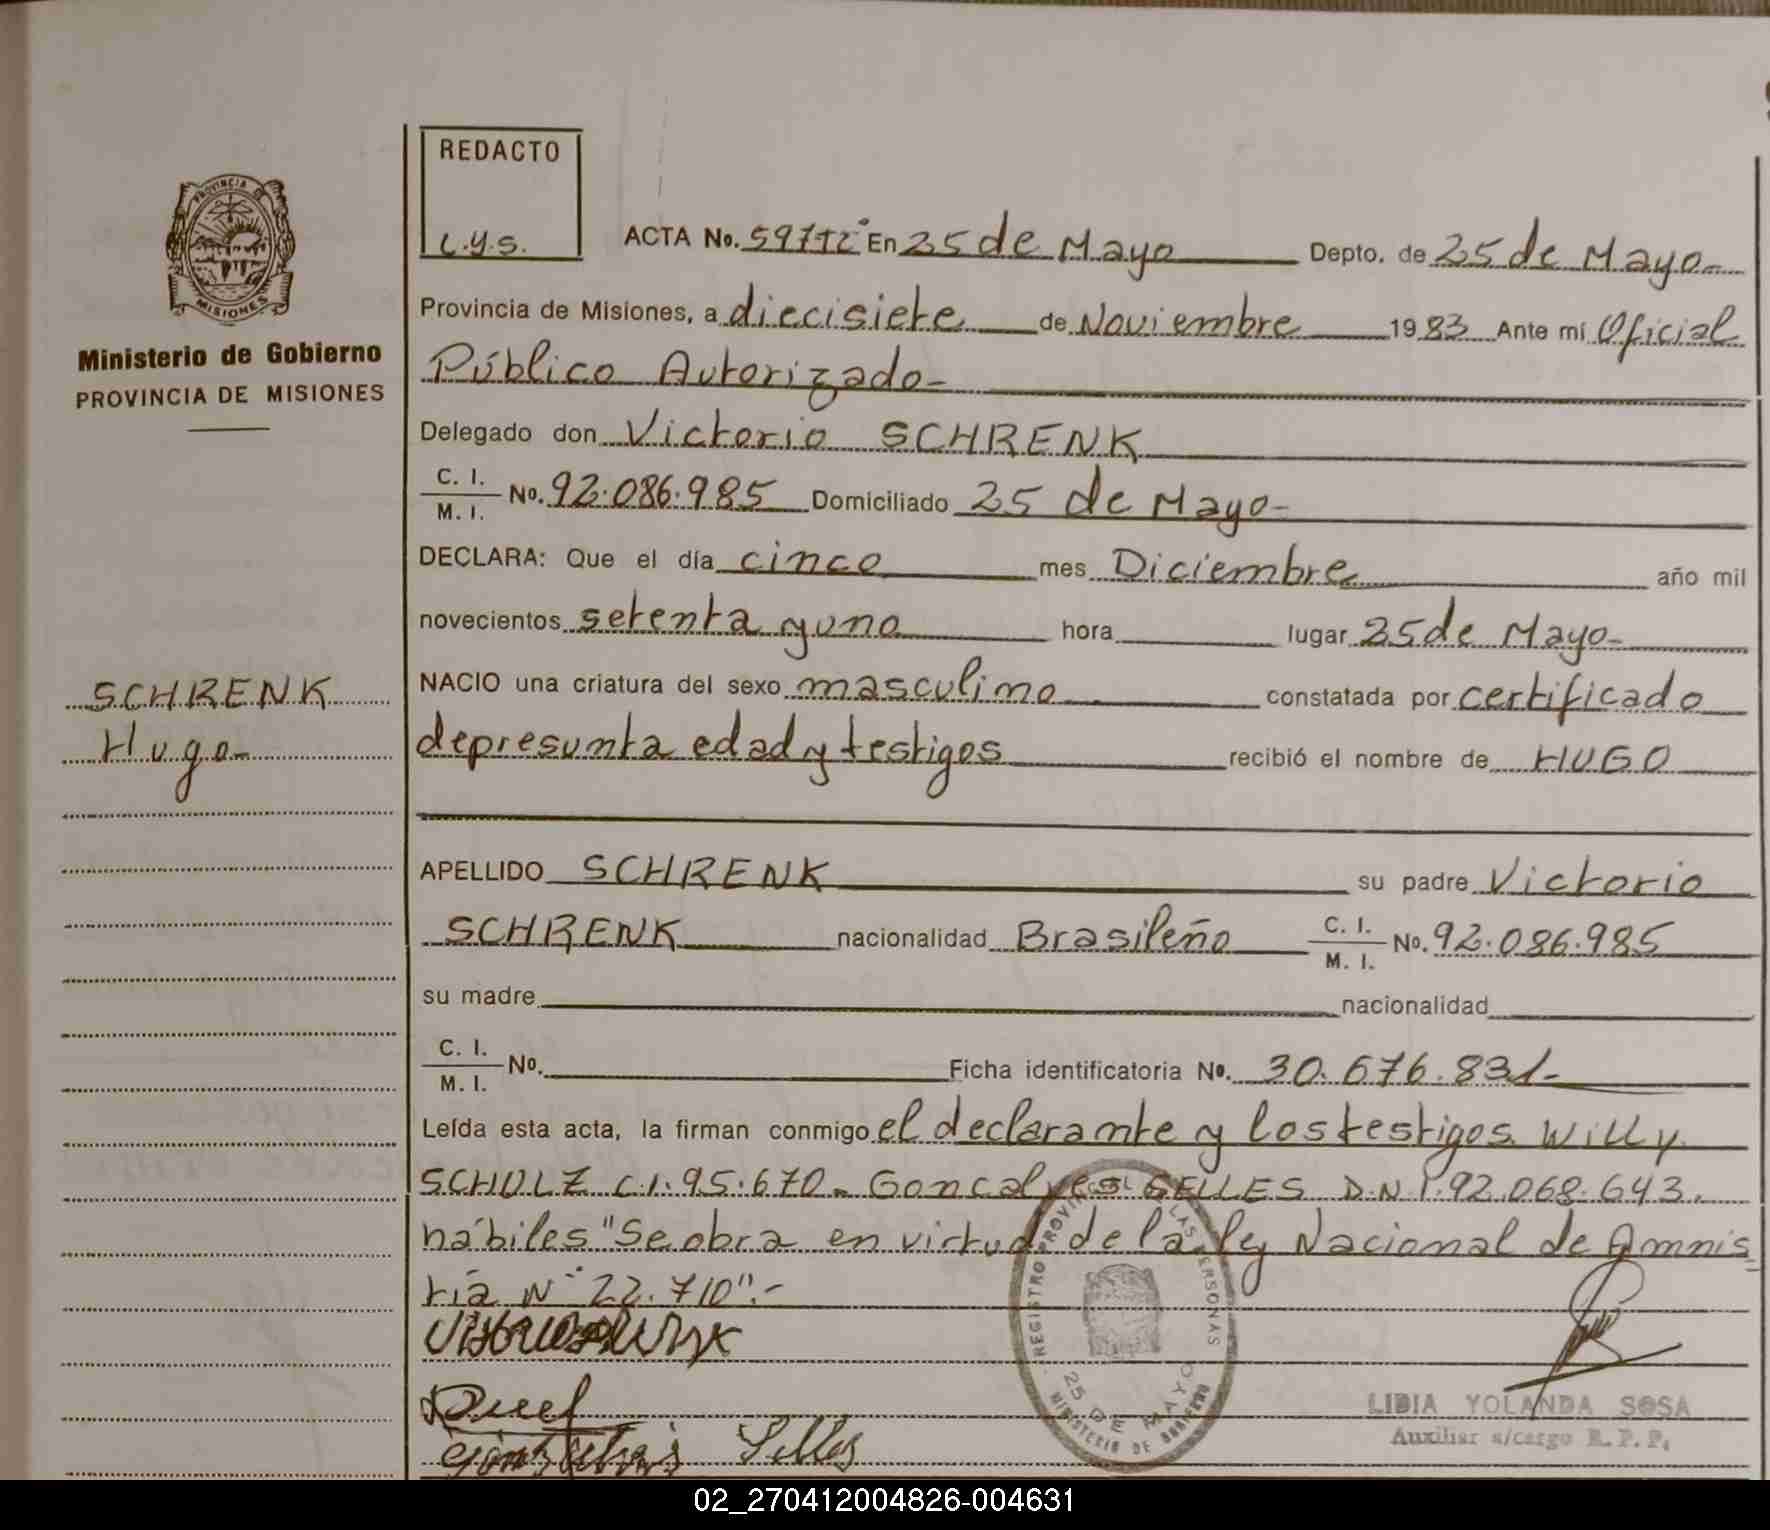 REDACTO
L.Y.S.
PROVINCIA DE
MISIONES
Ministerio de Gobierno
PROVINCIA DE MISIONES
ACTA No. En 25 de Mayo Depto. de 25 de Mayo-
Provincia de Misiones, a diecisiete de Noviembre 1983 Ante mí Oficial
Público Autorizado-
Delegado don Victorio SCHRENK
C. I.
M. I. No. 92.086.985 Domiciliado 25 de Mayo-
DECLARA: Que el día cinco mes Diciembre año mil
novecientos setenta y uno hora lugar 25 de Mayo-
SCHRENK
Hugo-
NACIO una criatura del sexo masculino constatada por certificado
de presunta edad y testigos recibió el nombre de HUGO
APELLIDO SCHRENK su padre Victorio
SCHRENK nacionalidad Brasileño C. I. M. I. No. 92.086.985
su madre nacionalidad
C. I.
M. I. No. Ficha identificatoria No. 30.676.831-
Leída esta acta, la firman conmigo el declarante y los testigos Willy
SCHULZ C.I. 95.670- Goncalves SELLES D.N.I. 92.068.643.
hábiles "Se obra en virtud de la ley Nacional de Amnis
tía N° 22.710".-
REGISTRO PROVINCIAL DE LAS PERSONAS
25 DE MAYO
MINISTERIO DE GOBIERNO
LIDIA YOLANDA SOSA
Auxiliar a/cargo R. P. P.
Selles
02_270412004826-004631